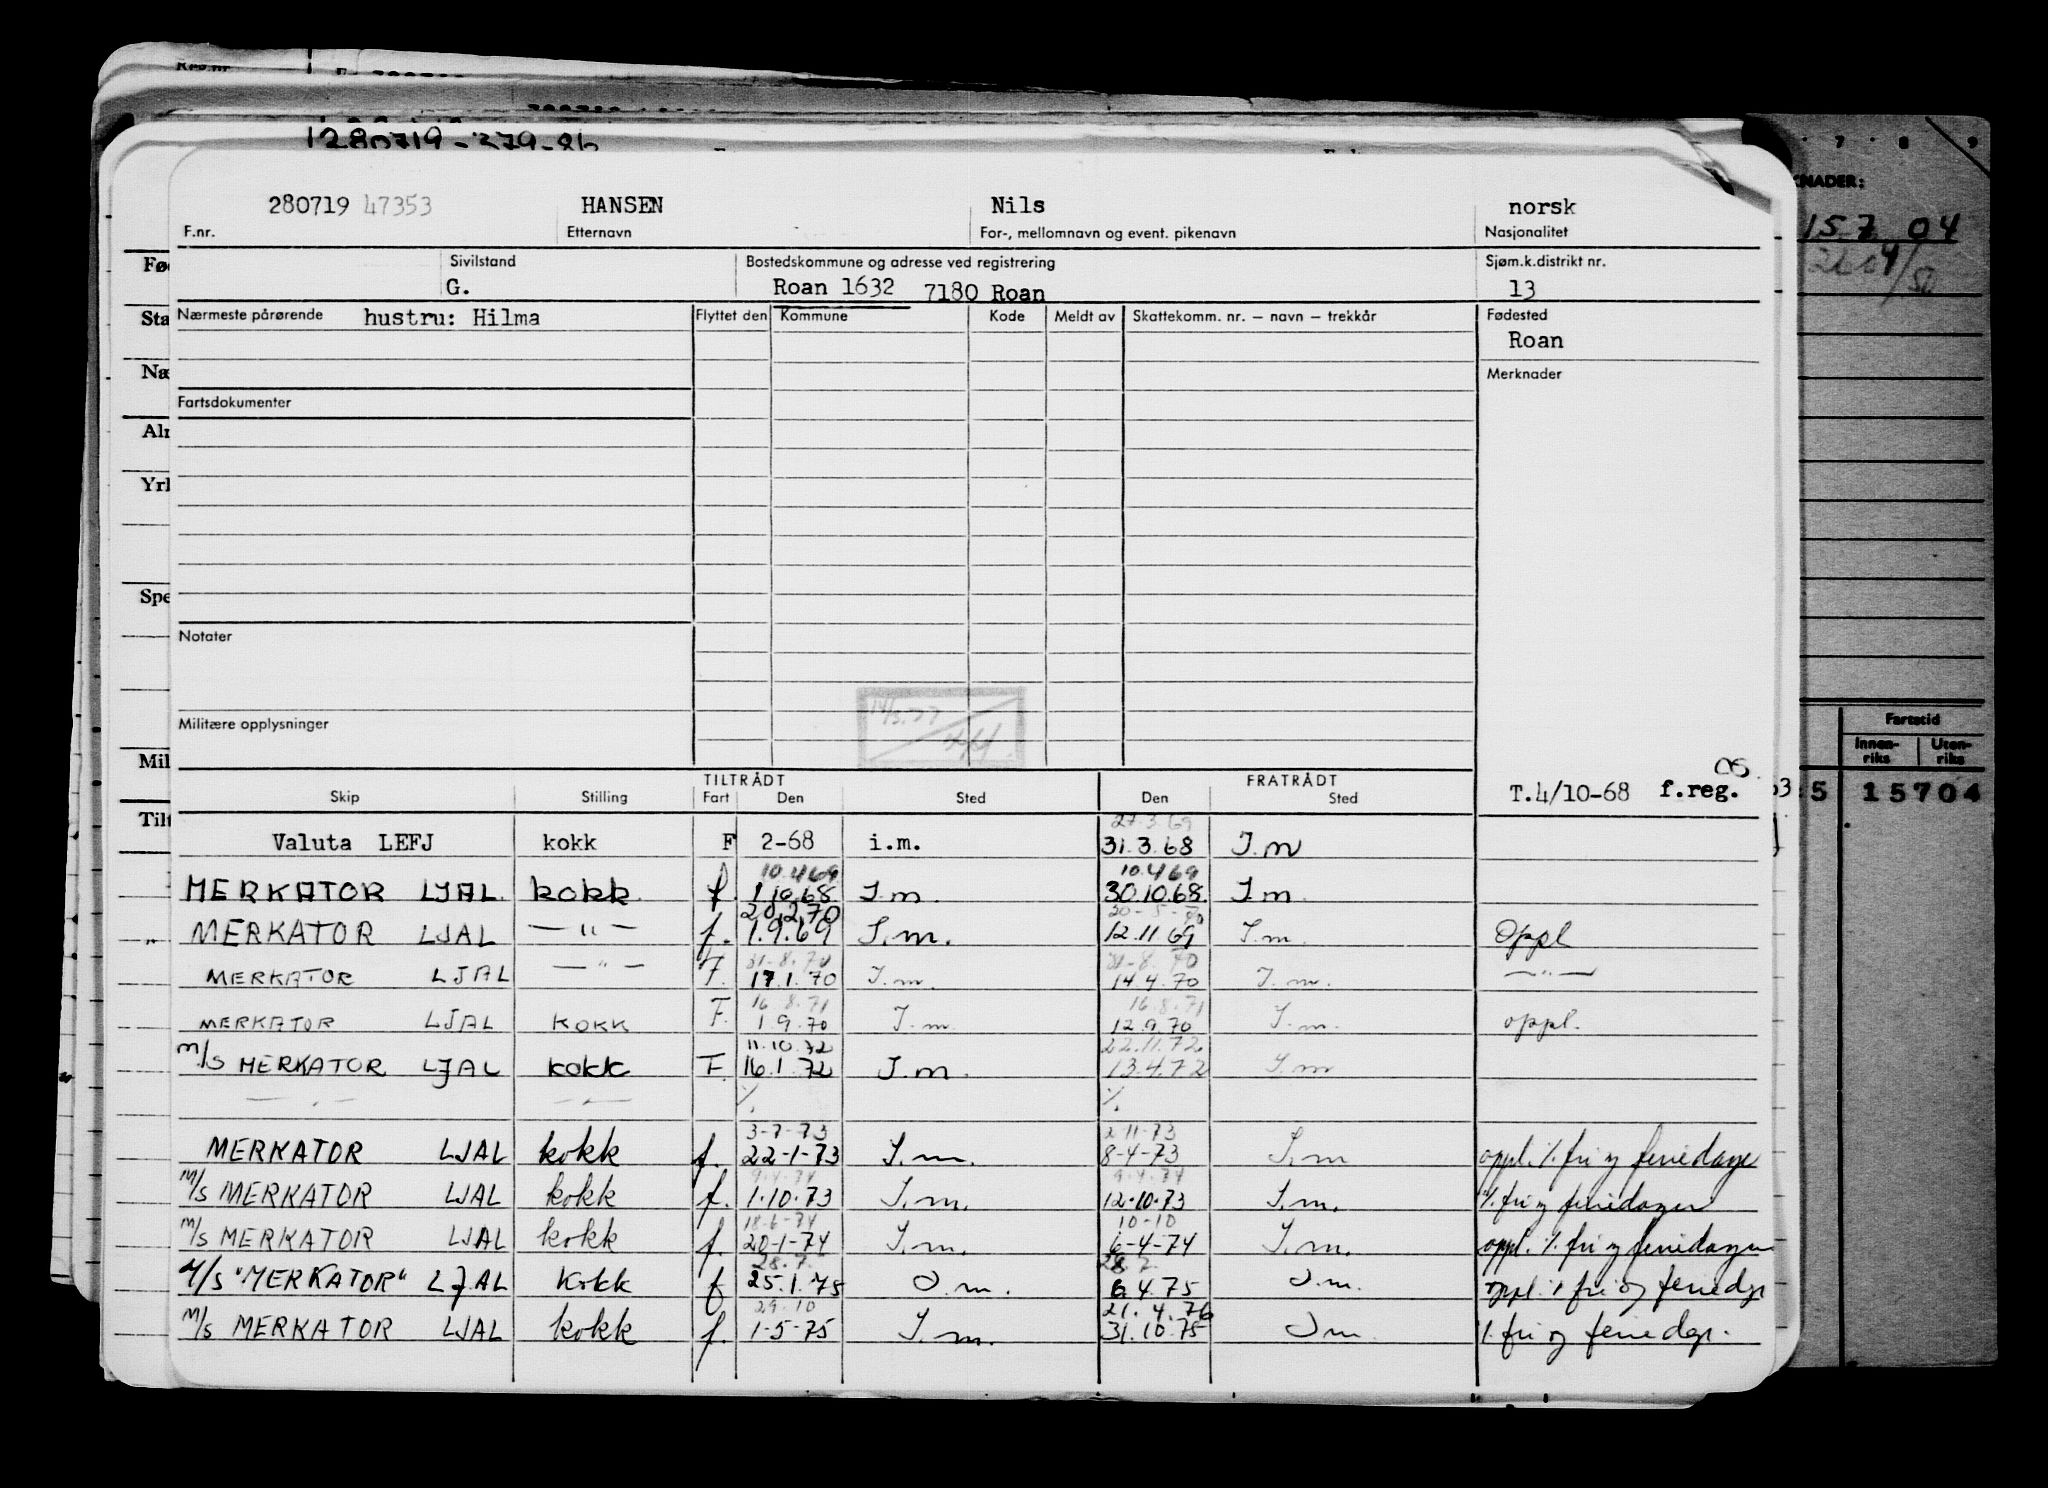 1280719-379-86
280719 47353 HANSEN Nils norsk
F.nr. Etternavn For-, mellomnavn og event. pikenavn Nasjonalitet
Sivilstand Bostedskommune og adresse ved registrering Sjøm.k.distrikt nr.
G. Roan 1632 7180 Roan 13
Nærmeste pårørende hustru: Hilma Flyttet den Kommune Kode Meldt av Skattekomm. nr. – navn – trekkår Fødested
Roan
Merknader
Fartsdokumenter
Notater
Militære opplysninger
TILTRÅDT FRATRÅDT
Skip Stilling Fart Den Sted Den Sted T.4/10-68 f.reg.
27.3.69
Valuta LEFJ kokk F 2-68 i.m. 31.3.68 I.m
10.4.69 10.4.69
MERKATOR LJAL. kokk. f. 1.10.68 I.m. 30.10.68. I.m.
20.2.70
MERKATOR LJAL —"— f. 1.9.69 I.m. 12.11.69 I.m. Oppl
31-8.70 31-8.70
MERKATOR LJAL —"— F. 17.1.70 I.m. 14.4.70 I.m. —"—
16.8.71 16.8.71
MERKATOR LJAL KOKK F. 1.9.70 I.m. 12.9.70 I.m. oppl.
11.10.72 22.11.72
M/S MERKATOR LJAL KOKK F. 16.1.72 I.m. 13.4.72 I.m
—"— —"— %. %.
3-7-73 2-11-73
MERKATOR LJAL kokk f. 22-1-73 I.m. 8-4-73 I.m oppl. %. fri og feriedager
9.4.74 9.4.74
M/S MERKATOR LJAL kokk f. 1.10.73 I.m. 12.10.73 I.m. %. fri og feriedager
18-6-74 10-10
M/S MERKATOR LJAL kokk f. 20-1-74 I.m. 6-4-74 I.m. oppl. %. fri og feriedager
28.7. 28.7
M/S "MERKATOR" LJAL Kokk f 25.1.75 I.m. 6.4.75 I.m. oppl. % fri og feriedgr
29.10 21.4.76
M/S MERKATOR LJAL kokk f. 1-5-75 I.m. 31.10.75 I.m. %. fri og feriedgr.
7 8 9
15.7 04
Fartstid
Innen-riks Uten-riks
5 15704